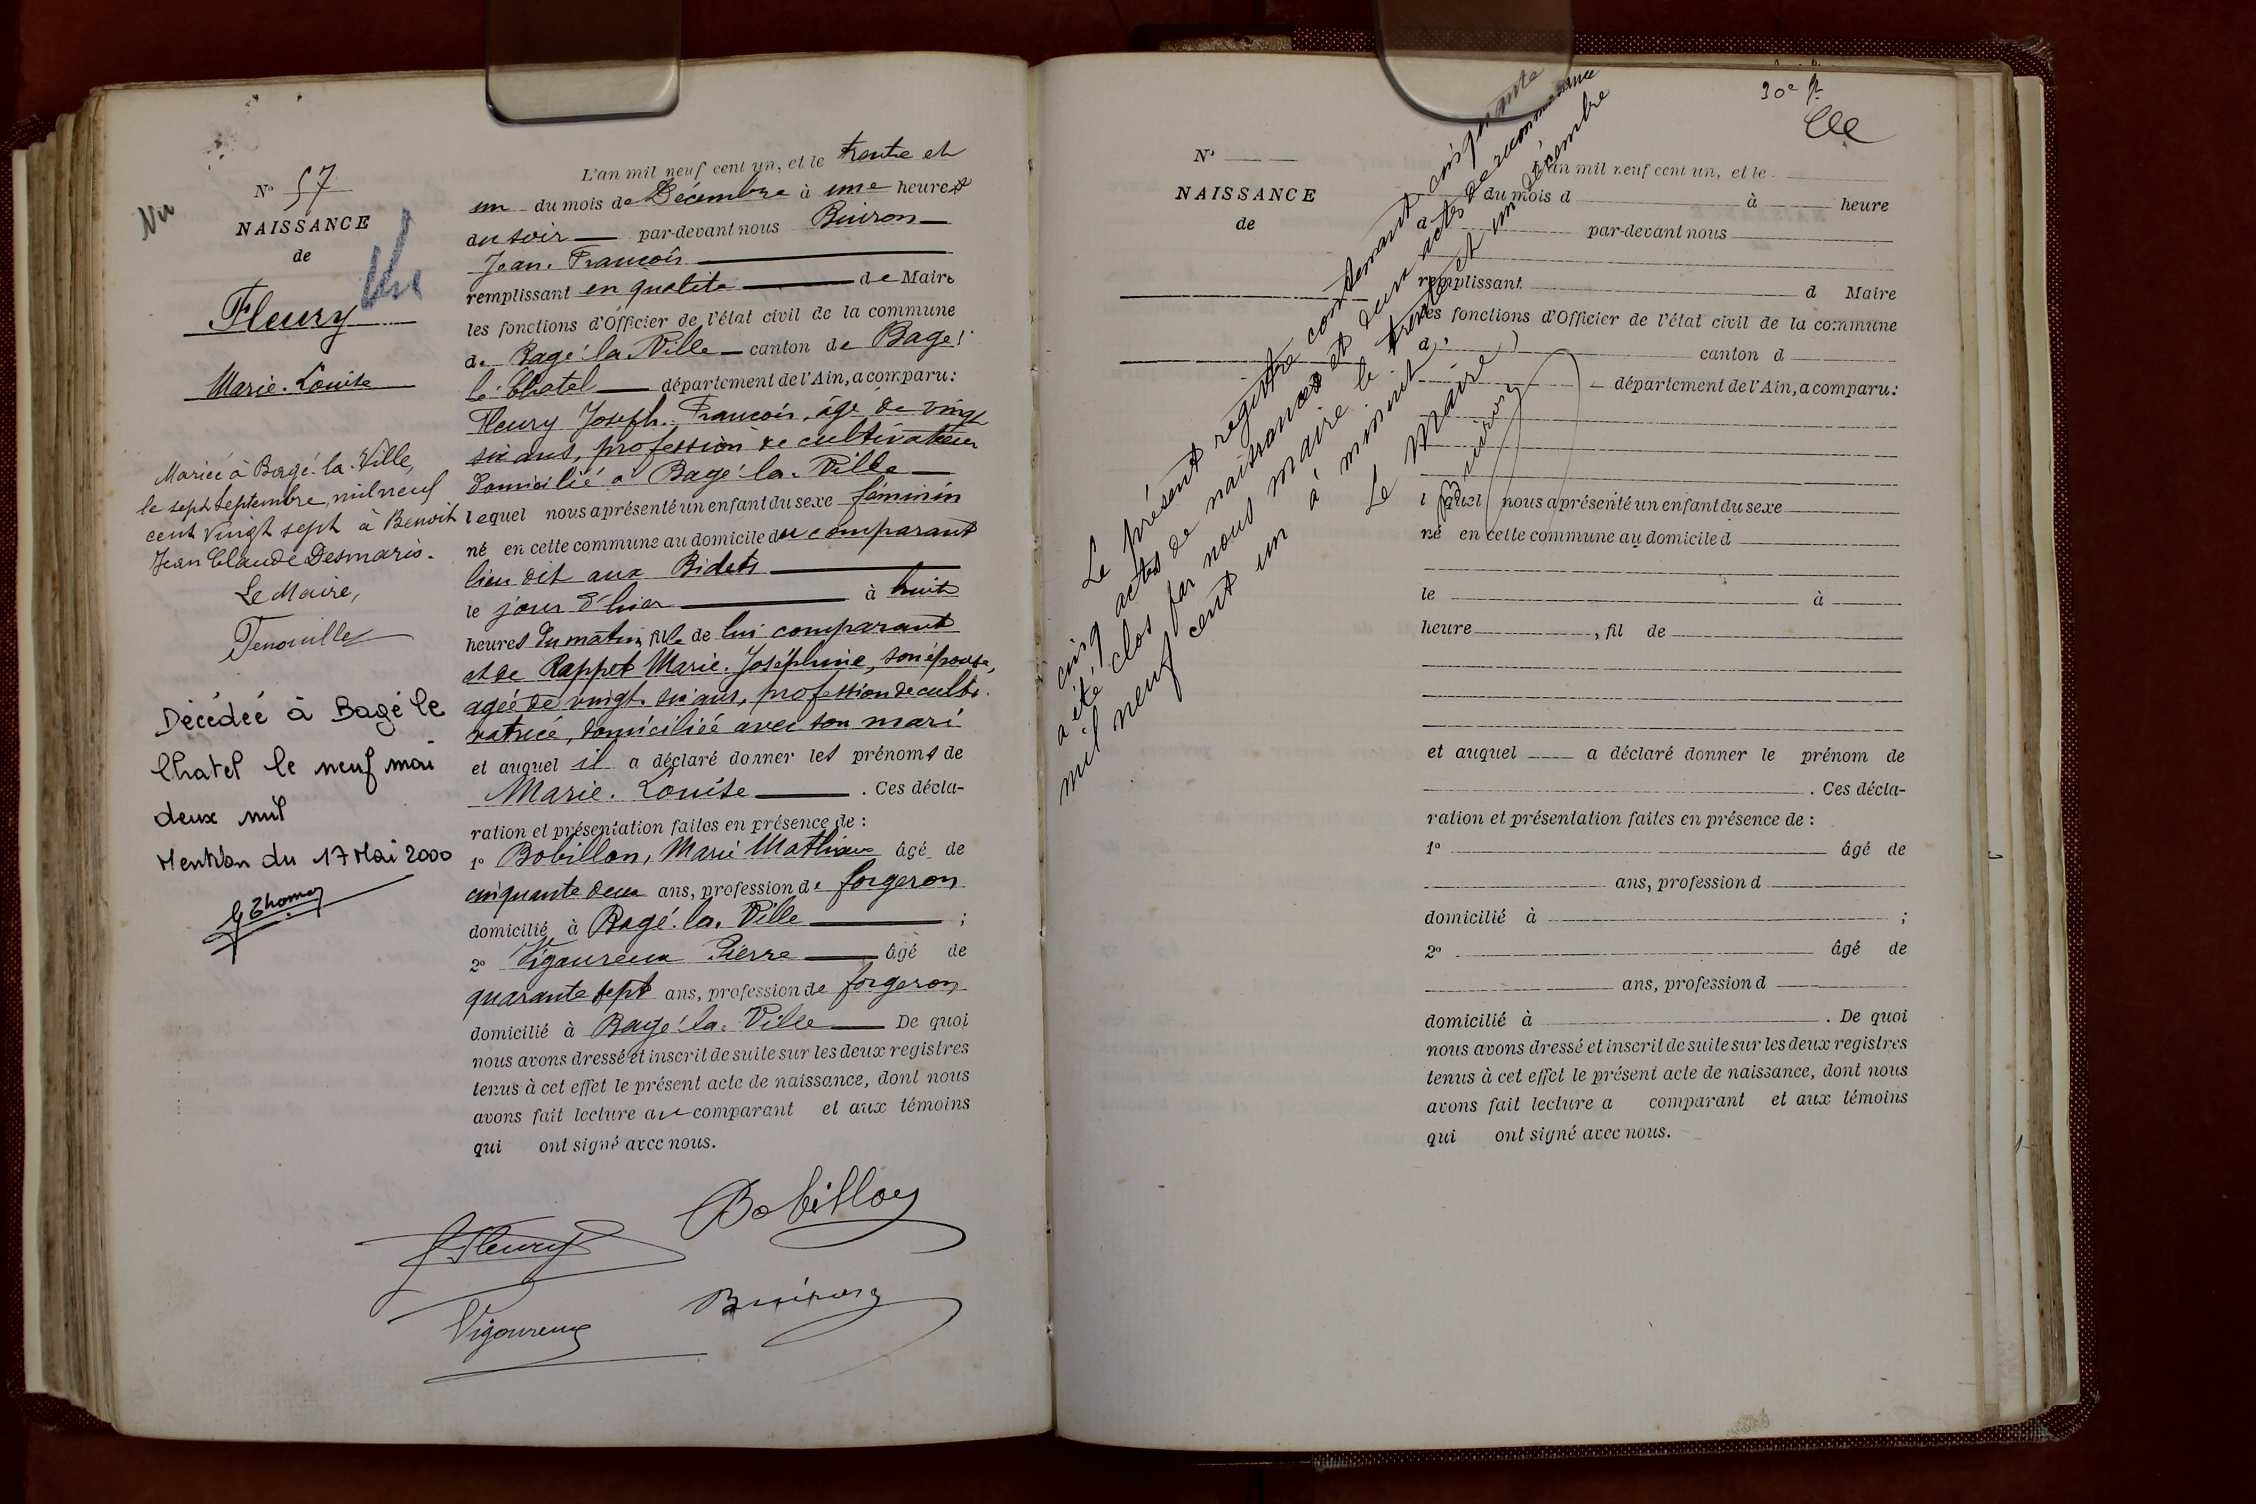 Nº 57
Vu
NAISSANCE
de
Fleury
Marie-Louise
Mariée à Bagé-la-Ville,
le sept septembre, mil neuf
cent vingt sept à Benoit
Jean Claude Desmaris.
Le Maire,
Décédée à Bagé le
Chatel le neuf mai
deux mil
Mention du 17 Mai 2000
G Thomas
L'an mil neuf cent un, et le trente et
un du mois de Décembre à une heure
du soir par-devant nous Buiron
Jean-François
remplissant en qualité de Maire
les fonctions d'Officier de l'état civil de la commune
de Bagé-la-Ville canton de Bagé
le-Chatel département de l'Ain, a comparu:
Fleury Joseph-François, âgé de vingt
six ans, profession de cultivateur
domicilié à Bagé-la-Ville
lequel nous a présenté un enfant du sexe féminin
né en cette commune au domicile du comparant
lieu dit aux Bidets
le jour d'hier à huit
heures du matin, fille de lui comparant
et de Rappet Marie-Joséphine, son épouse,
agée de vingt-six ans, profession de culti-
vatrice, domiciliée avec son mari
et auquel il a déclaré donner les prénoms de
Marie-Louise. Ces décla-
ration et présentation faites en présence de :
1º Bobillon, Marie Mathieu âgé de
cinquante deux ans, profession de forgeron
domicilié à Bagé-la-Ville ;
2º Vigoureux Pierre âgé de
quarante sept ans, profession de forgeron
domicilié à Bagé-la-Ville De quoi
nous avons dressé et inscrit de suite sur les deux registres
tenus à cet effet le présent acte de naissance, dont nous
avons fait lecture au comparant et aux témoins
qui ont signé avec nous.
Bobillon
J Fleury
Buiron
Vigoureux
30e
Nº
NAISSANCE
de
L'an mil neuf cent un, et le
du mois d à heure
par-devant nous
remplissant d Maire
les fonctions d'Officier de l'état civil de la commune
d canton d
département de l'Ain, a comparu:
l quel nous a présenté un enfant du sexe
né en cette commune au domicile d
le à
heure , fil de
et auquel a déclaré donner le prénom de
. Ces décla-
ration et présentation faites en présence de :
1º âgé de
ans, profession d
domicilié à ;
2º âgé de
ans, profession d
domicilié à . De quoi
nous avons dressé et inscrit de suite sur les deux registres
tenus à cet effet le présent acte de naissance, dont nous
avons fait lecture a comparant et aux témoins
qui ont signé avec nous.
Le présent registre contenant cinquante
cinq actes de naissances et deux actes de reconnaissance
a été clos par nous maire le trente et un décembre
mil neuf cent un à minuit
Le Maire
Buiron